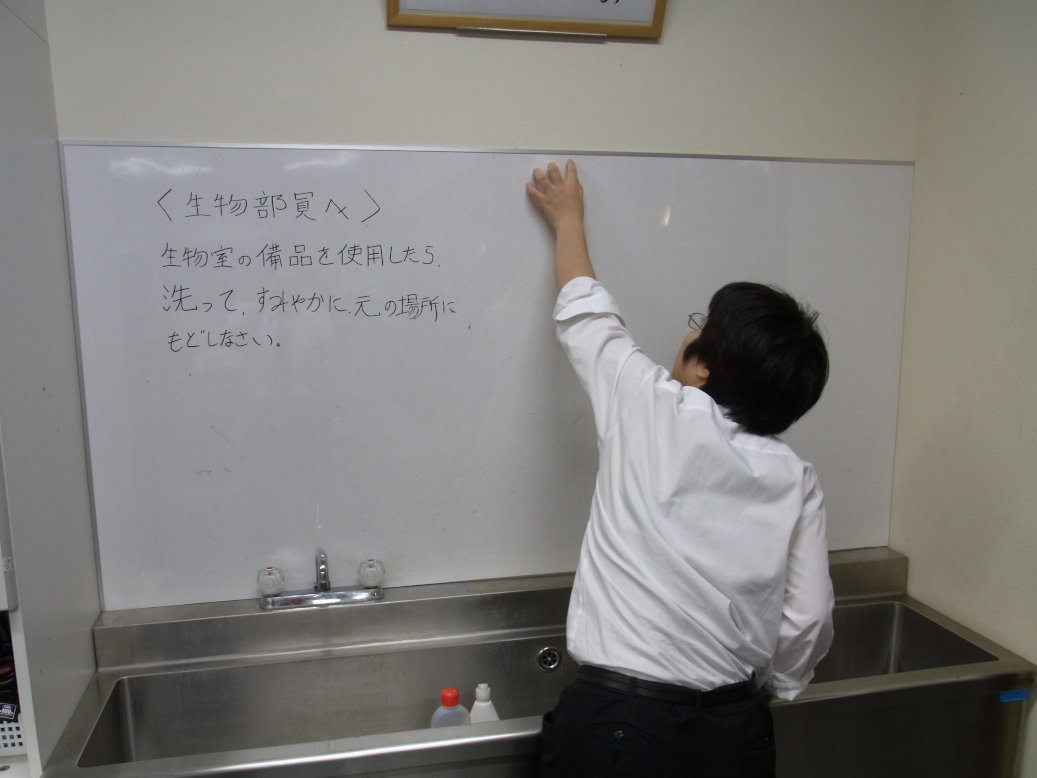 〈生物部員へ〉
生物室の備品を使用したら、
洗って、すみやかに、元の場所に
もどしなさい。